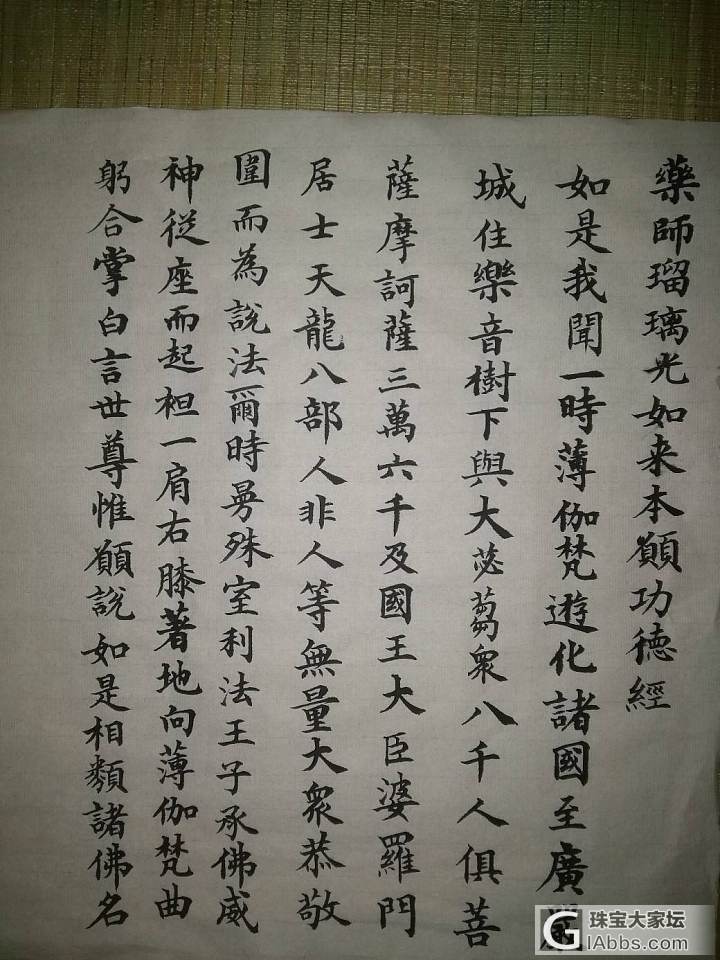 藥師瑠璃光如来本願功德經
如是我聞一時薄伽梵遊化諸國至廣
城住樂音樹下與大苾芻衆八千人俱菩
薩摩訶薩三萬六千及國王大臣婆羅門
居士天龍八部人非人等無量大衆恭敬
圍而為說法爾時曼殊室利法王子承佛威
神從座而起袒一肩右膝著地向薄伽梵曲
躬合掌白言世尊惟願說如是相類諸佛名
珠宝大家坛
GIAbbs.com